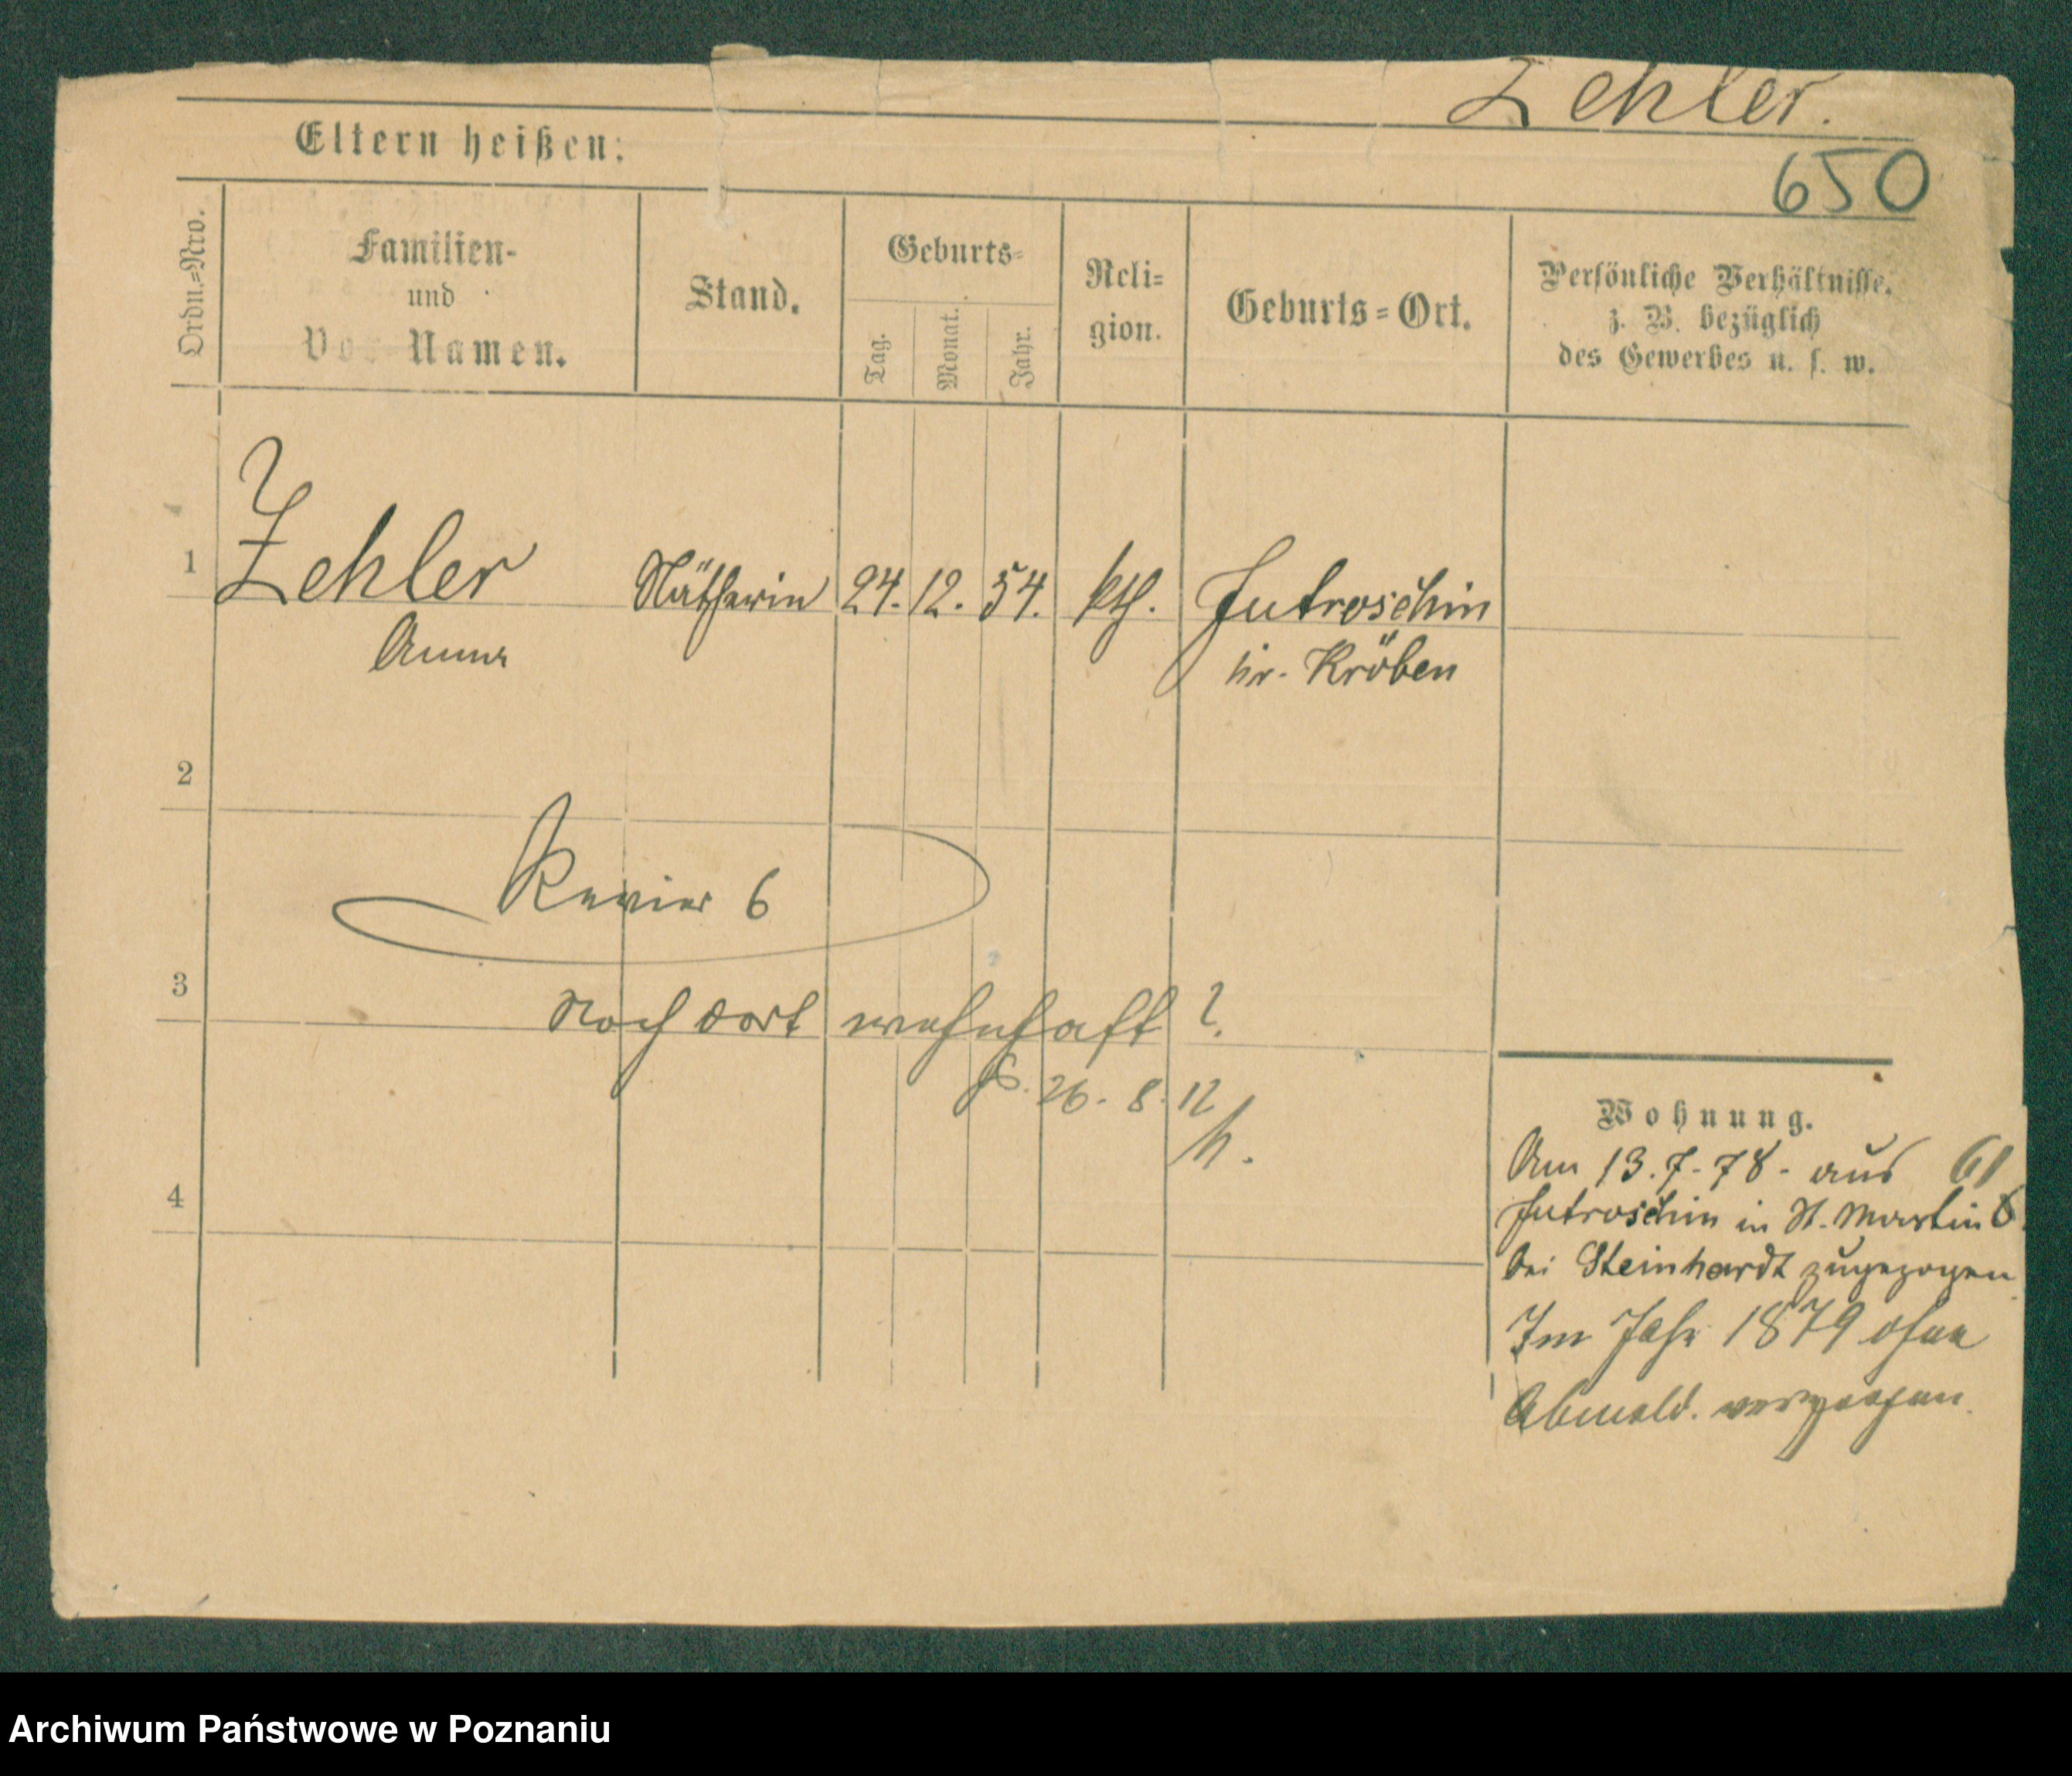 Zehler.
650
Eltern heißen:
Ordn.=Nro.
Familien-
und
Vor Namen.
Stand.
Geburts-
Tag.
Monat.
Jahr.
Reli=
gion.
Geburts=Ort.
Persönliche Verhältnisse,
z. B. bezüglich
des Gewerbes u. s. w.
1
Zehler
Anna
Nätherin
24.
12.
54.
kth.
Jutroschin
kr. Kröben
2
Revier 6
3
Noch dort wohnhaft?
P. 26. 8. 12
4
Wohnung.
Am 13.7.78. aus 61
Jutroschin in St. Martin
bei Steinhardt zugezogen
Im Jahr 1879 ohne
Abmeld. verzogen.
Archiwum Państwowe w Poznaniu